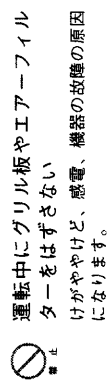 禁止
運転中にグリル板やエアーフィル
ターをはずさない
けがややけど、感電、機器の故障の原因
になります。